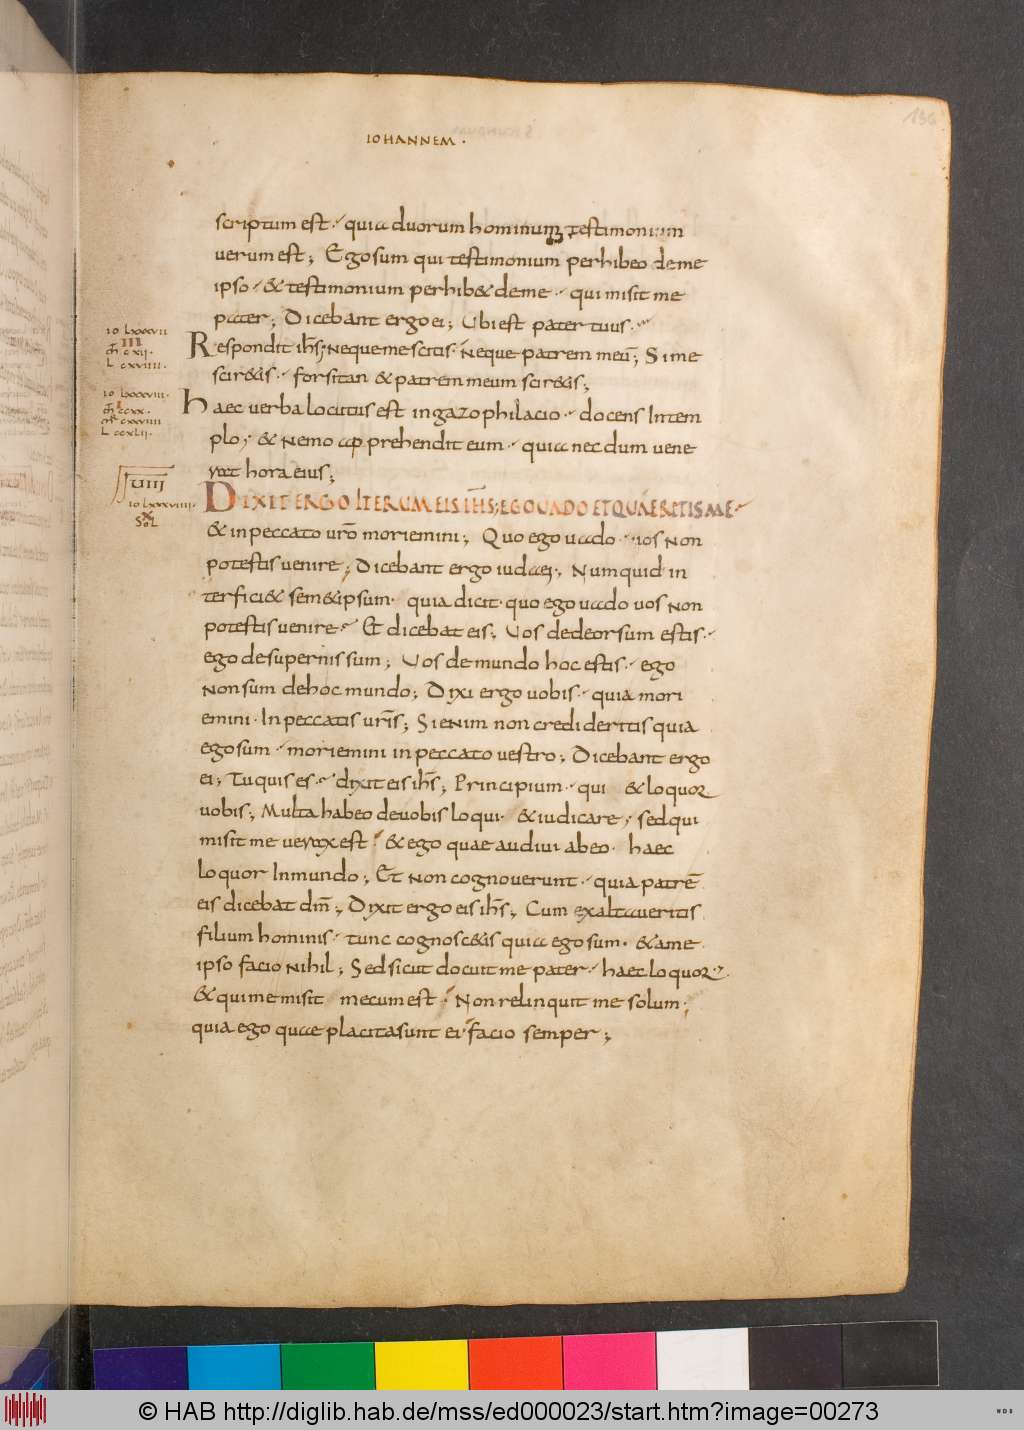 IOHANNEM·
136
scriptum est· quia duorum hominum testimonium
uerum est; Ego sum qui testimonium perhibeo de me
ipso· & testimonium perhib& de me· qui misit me
pater; Dicebant ergo ei; Ubi est pater tuus·
io lxxxvii
III
Respondit ih̅s; Neque me scitis· Neque patrem meu̅; Si me
m̅ cxii·
L cxviiii·
scir&is· forsitan & patrem meum scir&is;
io lxxxviii·
I
Haec uerba locutus est in gazophilacio· docens In tem
m̅ ccxx·
mr̅ cxxviiii
L ccxlii·
plo; & Nemo apprehendit eum· quia necdum uene
rat hora eius;
uiiii
DIXIT ERGO ITERUM EIS IH̅S; EGO UADO ET QUAERETIS ME·
io lxxxviiii·
X
Sol
& in peccato ur̅o moriemini; Quo ego uado· uos Non
potestis uenire; Dicebant ergo iudaei; Numquid in
terfici& semetipsum· quia dicit· quo ego uado uos Non
potestis uenire· Et dicebat eis; Uos de deorsum estis·
ego de supernis sum; Uos de mundo hoc estis· ego
Non sum de hoc mundo; Dixi ergo uobis· quia mori
emini· In peccatis ur̅is; Si enim non credideritis quia
ego sum· moriemini in peccato uestro; Dicebant ergo
ei; Tu quis es· dixit eis ih̅s; Principium· qui & loquor
uobis; Multa habeo de uobis loqui· & iudicare; sed qui
misit me uerax est· & ego quae audiui ab eo· haec
loquor In mundo; Et Non cognouerunt· quia patre̅
eis dicebat dm̅; Dixit ergo eis ih̅s; Cum exaltaueritis
filium hominis· tunc cognosc&is quia ego sum· & a me
ipso facio Nihil; Sed sicut docuit me pater· haec loquor
& qui me misit mecum est· Non relinquit me solum;
quia ego quae placita sunt ei· facio semper;
© HAB http://diglib.hab.de/mss/ed000023/start.htm?image=00273
WDB